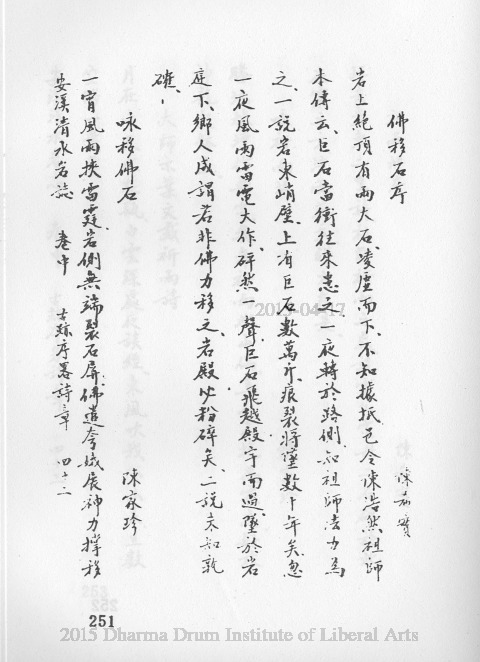 佛移石序
陳嘉實
岩上絶頂有兩大石、凌虛而下、不知據抵、邑令陳浩然祖師
本傳云、巨石當衝往來患之、一夜轉於路側、知祖師法力爲
之、一説岩東峭壁、上有巨石數萬斤、痕裂將墜數十年矣、忽
一夜風雨雷電大作、砰然一聲、巨石飛越殿宇而過、墜於岩
庭下、鄉人咸謂若非佛力移之、岩殿必粉碎矣、二説未知孰
確、
咏移佛石
陳家珍
一宵風雨挾雷霆、岩側無端裂石屏、佛遣夸娥展神力撑移
安溪清水岩誌 卷中 古蹟序畧詩章 四十二
251
2015-04-17
2015 Dharma Drum Institute of Liberal Arts